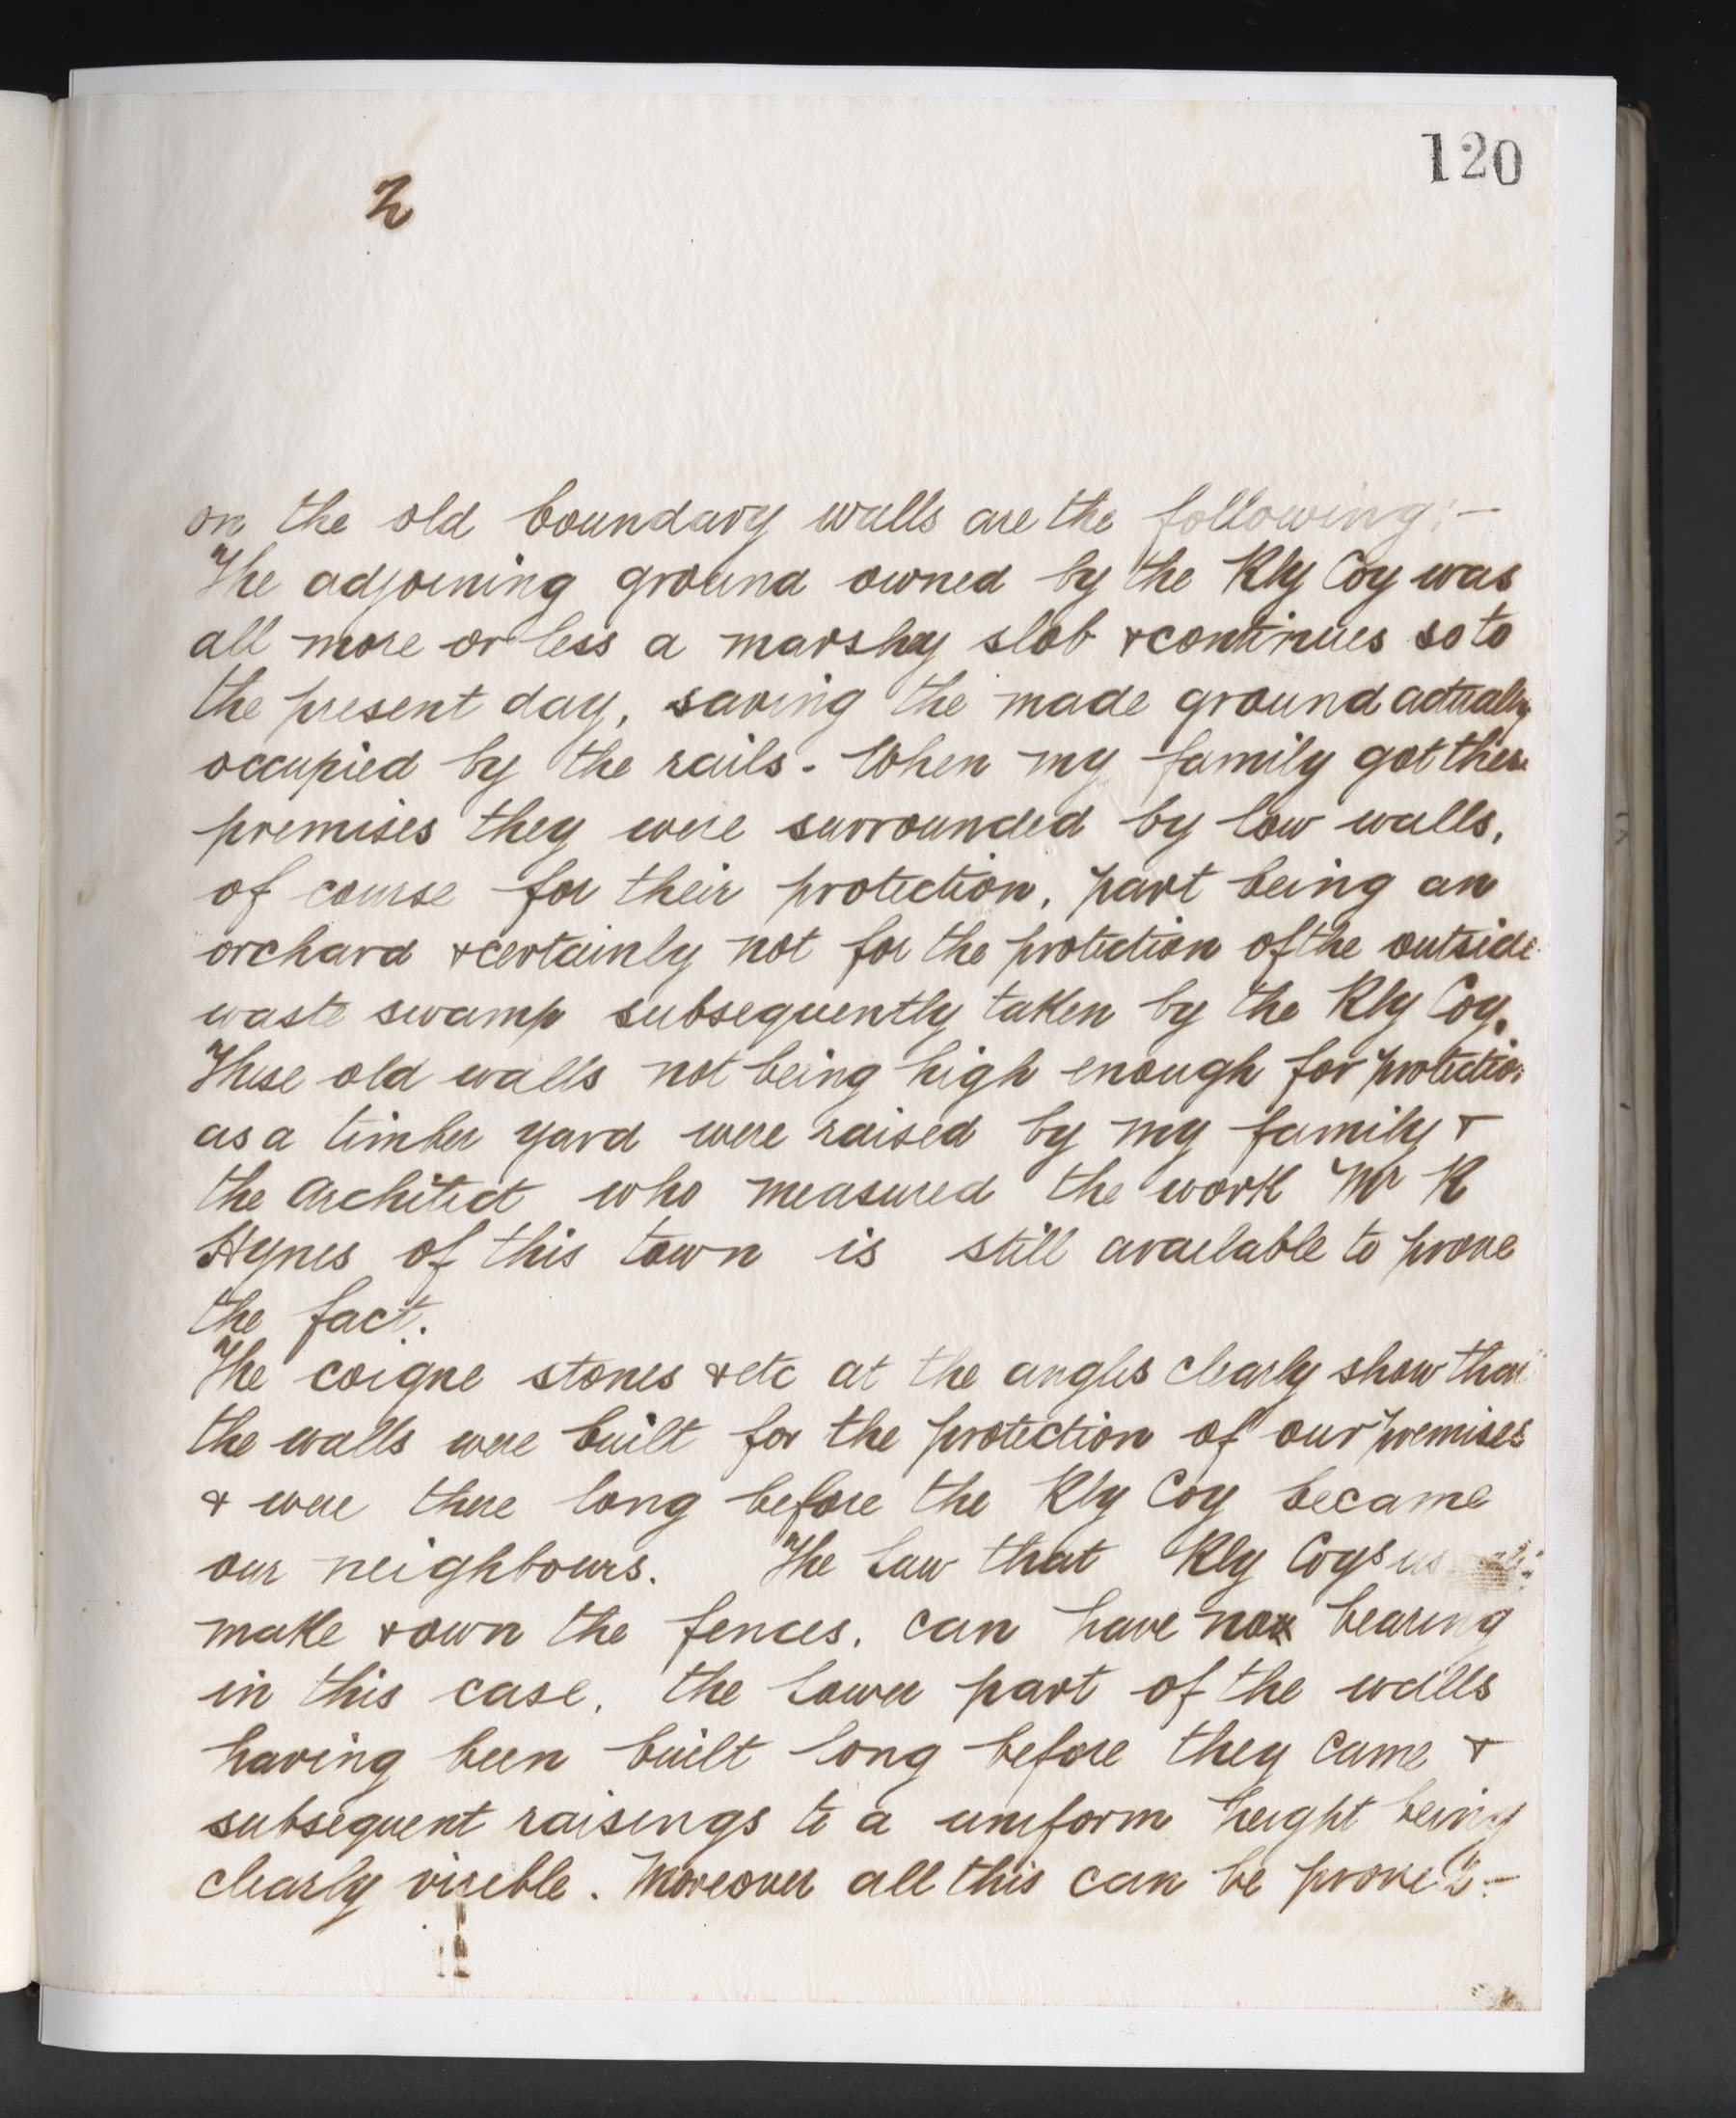 120
2
on the old boundary walls are the following:-
The adjoining ground owned by the Rly Coy was
all more or less a marshy slob & continues so to
the present day, saving the made ground actually
occupied by the rails. When my family got these
premises they were surrounded by low walls,
of course for their protection, part being an
orchard & certainly not for the protection of the outside
waste swamp subsequently taken by the Rly Coy.
These old walls not being high enough for protection
as a timber yard were raised by my family &
the Architect who measured the work Mr R
Hynes of this town is still available to prove
the fact.
The coigne stones & etc at the angles clearly show that
the walls were built for the protection of our premises
& were there long before the Rly Coy became
our neighbours. The Law that Rly Coys
make & own the fences, can have no bearing
in this case, the lower part of the walls
having been built long before they came &
subsequent raisings to a uniform height being
clearly visible. Moreover all this can be proved :-